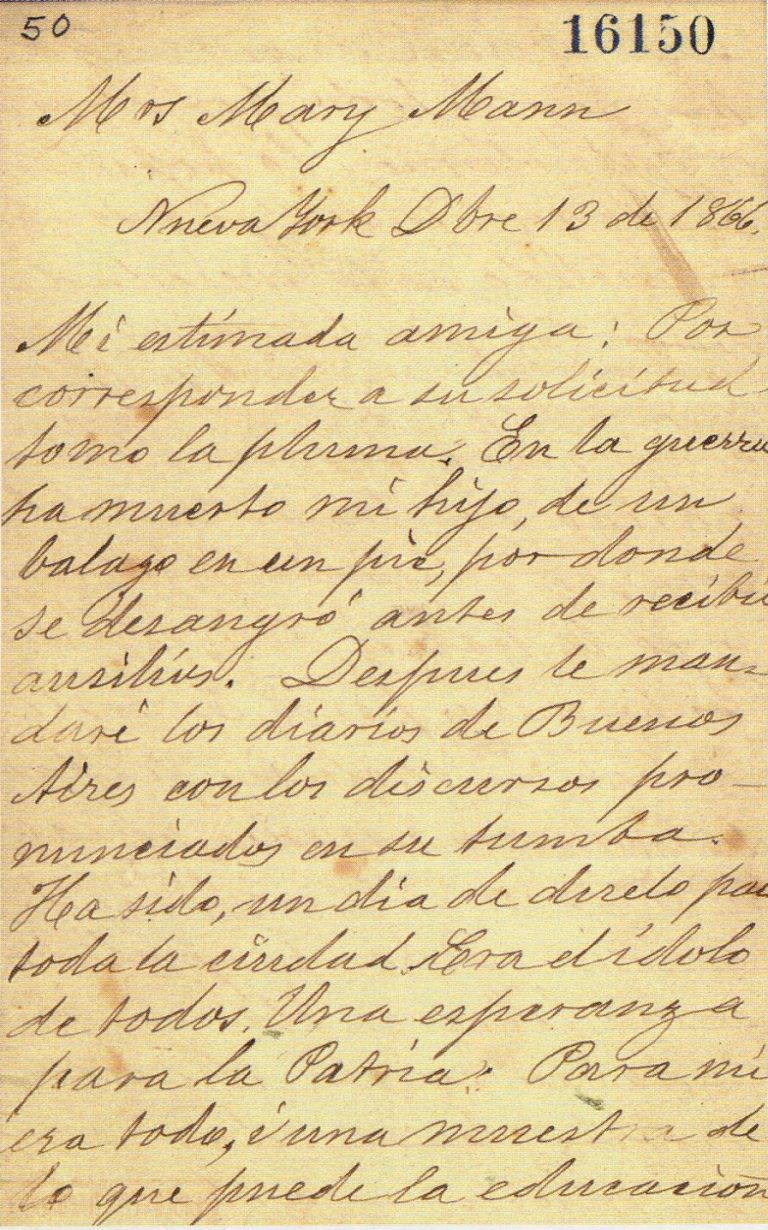 50
16150
Mrs Mary Mann
Nueva York Dbre 13 de 1866.
Mi estimada amiga: Por
corresponder a su solicitud
tomo la pluma. En la guerra
ha muerto mi hijo, de un
balazo en un pie, por donde
se desangró antes de recibir
ausilios. Despues le man-
daré los diarios de Buenos
Aires con los discursos pro-
nunciados en su tumba.
Ha sido, un dia de duelo para
toda la ciudad. Era el ídolo
de todos. Una esperanza
para la Patria. Para mi
era todo, i una muestra de
lo que puede la educacion